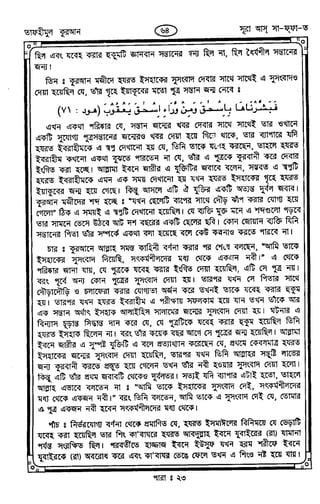 তাফহীমুল কুরআন
৬৪
সূরা আস্ সা-ফ্ফা-ত
ছিল এবং যবেহ করার হুকুমটি জ্ঞানবান সন্তানের জন্য ছিল না, ছিল ধৈর্যশীল সন্তানের
জন্য।
তিন : কুরআন মজীদে হযরত ইসহাকের সুসংবাদ দেবার সাথে সাথেই এ সুসংবাদও
দেয়া হয়েছিল যে, তাঁর গৃহে ইয়াকুবের মতো পুত্র সন্তান জন্ম নেবে :
فَبَشَّرْنَاهَا بِإِسْحٰقَ وَمِنْ وَّرَاءِ إِسْحٰقَ يَعْقُوْبَ (هود : ٧١)
এখন একথা পরিষ্কার যে, সন্তানের জন্মের খবর দেবার সাথে সাথেই তার ওখানে
একটি সুযোগ্য পুত্রসন্তানের জন্মেরও খবর দেয়া হয়ে গিয়ে থাকে, তার ব্যাপারে যদি
হযরত ইবরাহীমকে এ স্বপ্ন দেখানো হয় যে, তিনি তাকে যবেহ করছেন, তাহলে হযরত
ইবরাহীম কখনো একথা বুঝতে পারতেন না যে, তাঁর এ পুত্রকে কুরবানী করে দেবার
ইংগিত করা হচ্ছে। আল্লামা ইবনে জারীর এ যুক্তিটির জবাবে বলেন, সম্ভবত এ স্বপ্নটি
হযরত ইবরাহীমকে এমন এক সময় দেখানো হয় যখন হযরত ইসহাকের গৃহে হযরত
ইয়াকুবের জন্ম হয়ে গেছে। কিন্তু আসলে এটি ঐ যুক্তির একটি অত্যন্ত দুর্বল জবাব।
কুরআন মজীদের শব্দ হচ্ছে : "যখন ছেলেটি বাপের সাথে দৌড় ঝাঁপ করার যোগ্য হয়ে
গেলো" ঠিক এ সময়ই এ স্বপ্নটি দেখানো হয়েছিল। যে ব্যক্তি মুক্ত মনে এ শব্দগুলো পড়বে
তার সামনে ভেসে উঠবে আট দশ বছরের একটি ছেলের ছবি। কোন জোয়ান ব্যক্তি যিনি
সন্তানের পিতা তাঁর সম্পর্কে একথা বলা হয়েছে বলে কেউ কল্পনাও করতে পারবে না।
চার : কুরআনে আল্লাহ সমস্ত কাহিনী বর্ণনা করার পর শেষে বলছেন, "আমি তাকে
ইসহাকের সুসংবাদ দিয়েছি, সৎকর্মশীলদের মধ্য থেকে একজন নবী।" এ থেকে
পরিষ্কার জানা যায়, যে পুত্রকে যবেহ করার ইংগিত দেয়া হয়েছিল, এটি সে পুত্র নয়।
বরং পূর্বে অন্য কোন পুত্রের সুসংবাদ দেয়া হয়। তারপর যখন সে পিতার সাথে
দৌড়াদৌড়ি ও চলাফেরা করার যোগ্যতা অর্জন করে তখনই তাকে যবেহ করার হুকুম
হয়। তারপর যখন হযরত ইবরাহীম এ পরীক্ষায় সফলকাম হয়ে যান তখন তাঁকে আর
এক সন্তান অর্থাৎ ইসহাক আলাইহিস সালামের জন্মের সুসংবাদ দেয়া হয়। ঘটনার এ
বিন্যাস চূড়ান্ত সিদ্ধান্ত দান করে যে, যে পুত্রটিকে যবেহ করার হুকুম হয়েছিল তিনি
হযরত ইসহাক ছিলেন না। বরং তাঁর কয়েক বছর আগে সে পুত্রের জন্ম হয়েছিল। আল্লামা
ইবনে জারীর এ সুস্পষ্ট যুক্তিটি এ বলে প্রত্যাখ্যান করেছেন যে, প্রথমে কেবলমাত্র হযরত
ইসহাকের জন্মের সুসংবাদ দেয়া হয়েছিল, তারপর যখন তিনি আল্লাহর সন্তুষ্টি লাভের
জন্য কুরবানী করতে প্রস্তুত হয়ে গেলেন তখন তাঁর নবী হওয়ার সুসংবাদ দেয়া হলো।
কিন্তু এটি তাঁর প্রথম জবাবটি থেকেও দুর্বলতর। সত্যই যদি ব্যাপার এটাই হতো, তাহলে
আল্লাহ এভাবে বলতেন না : "আমি তাকে ইসহাকের সুসংবাদ দেই, সৎকর্মশীলদের
মধ্য থেকে একজন নবী।" বরং তিনি বলতেন, আমি তাকে এ সুসংবাদ দেই যে, তোমার
এ পুত্র একজন নবী হবেন সৎকর্মশীলদের মধ্য থেকে।
পাঁচ : নির্ভরযোগ্য বর্ণনা থেকে প্রমাণিত যে, হযরত ইসমাঈলের বিনিময়ে যে ভেড়াটি
যবেহ করা হয়েছিল তার শিং কা'বাঘরে হযরত আবদুল্লাহ ইবনে যুবাইরের (রা) যামানা
পর্যন্ত সংরক্ষিত ছিল। পরবর্তীতে হাজ্জাজ ইবনে ইউসুফ যখন হারম শরীফে ইবনে
যুবাইরকে (রা) অবরোধ করে এবং কা'বাঘর ভেঙে ফেলে তখন এ শিংও নষ্ট হয়ে যায়।
পারা : ২৩